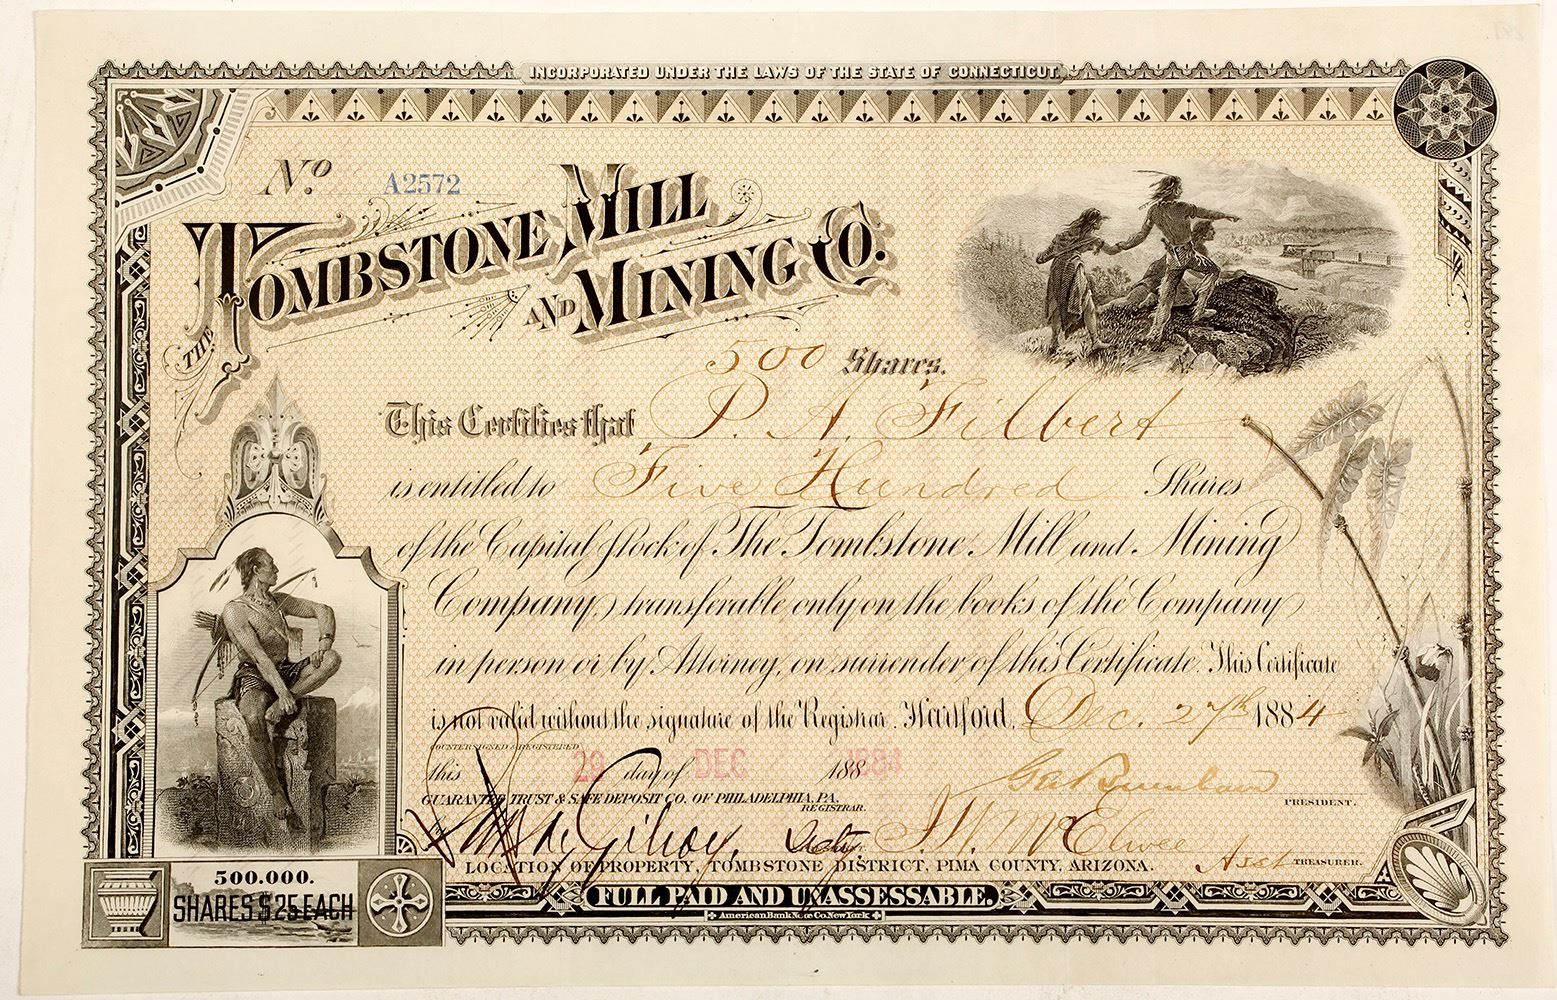 INCORPORATED UNDER THE LAWS OF THE STATE OF CONNECTICUT.
No. A2572
THE TOMBSTONE MILL
AND MINING CO.
500 Shares.
This Certifies that P. A. Filbert
is entitled to Five Hundred Shares
of the Capital Stock of The Tombstone Mill and Mining
Company, transferable only on the books of the Company
in person or by Attorney, on surrender of this Certificate. This Certificate
is not valid without the signature of the Registrar. Hartford, Dec. 27th 1884
COUNTERSIGNED & REGISTERED
this 29 day of DEC 188 1884
GUARANTEE TRUST & SAFE DEPOSIT CO. OF PHILADELPHIA, PA.
REGISTRAR.
PRESIDENT.
J. H. McElwee Asst TREASURER.
LOCATION OF PROPERTY, TOMBSTONE DISTRICT, PIMA COUNTY, ARIZONA.
500.000.
SHARES $25 EACH
FULL PAID AND UNASSESSABLE.
American Bank Note Co. New York